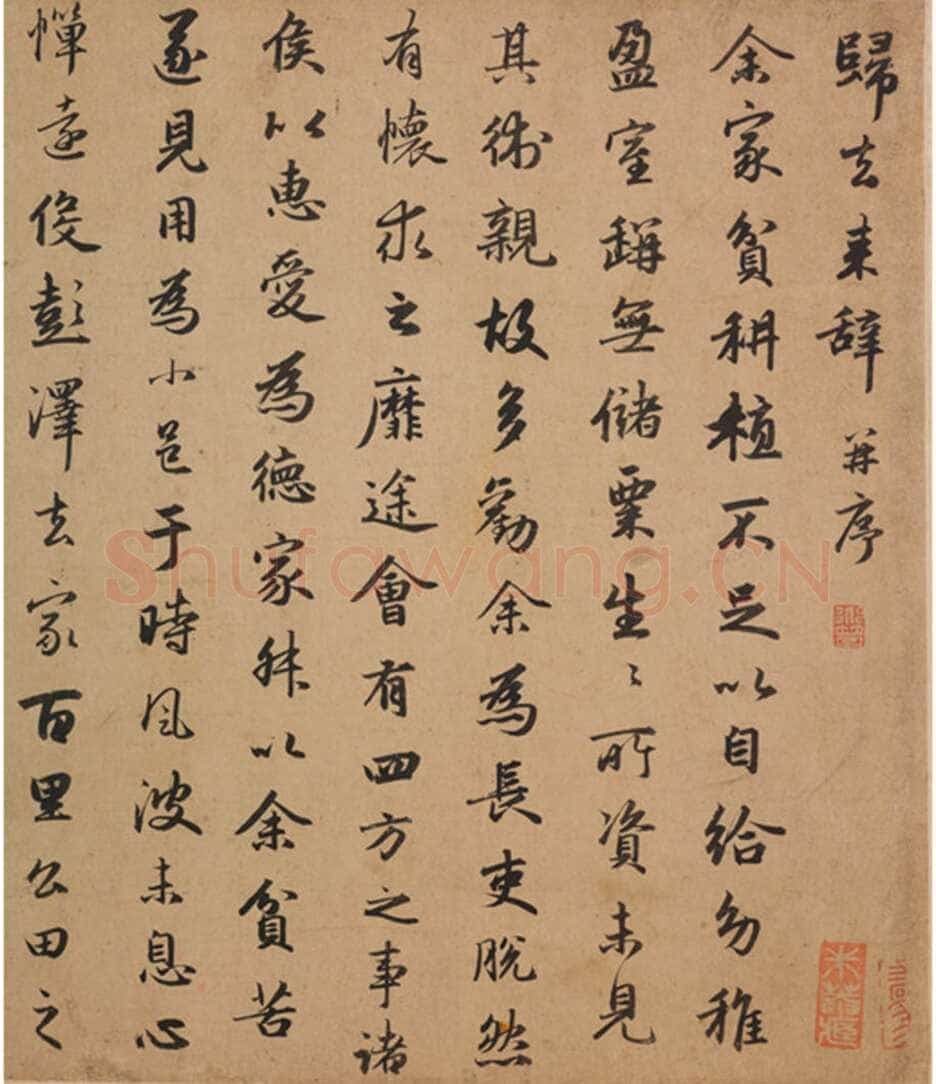 歸去来辞 并序
余家貧耕植不足以自給幼稚
盈室缾無儲粟生〻所資未見
其術親故多勸余為長吏脫然
有懷求之靡途會有四方之事諸
侯以惠愛為德家叔以余貧苦
遂見用為小邑于時風波未息心
憚遠役彭澤去家百里公田之
Shufawang.CN